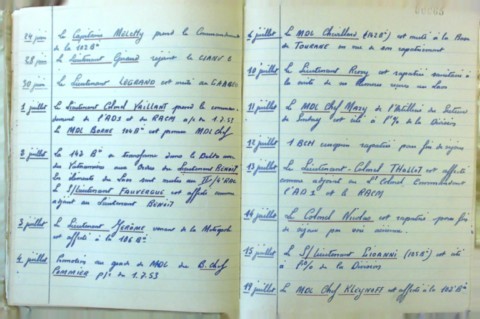 24 juin Le Capitaine Meletty prend le Commandement
de la 102 Bie
28 juin Le Lieutenant Guiard rejoint
30 juin Le Lieutenant LEGRAND est muté au
1 juillet Le Lieutenant Colonel VAILLANT prend le comman-
dement de l'AD3 et du RACM a/c du 1.7.53
Le MDL BORNE 104 Bie est promu MDL Chef
2 juillet La 143 Bie se transforme dans le Delta
du Vietnamien aux Ordres du Lieutenant BENOIT
Les éléments du Laos sont mutés au
Le S/Lieutenant FAUVERGUE est affecté comme
adjoint au Lieutenant BENOIT
3 juillet Le Lieutenant JEROME venant de la Métropole
est affecté à la
4 juillet Promotion au grade de MDL du B. Chef
POMMIER p/c du 1.7.53
6 juillet Le MDL Chevillard (142 Bie) est muté à la Base
de TOURANE en vue de son rapatriement
10 juillet Le Lieutenant Remy est rapatrié sanitaire à
la suite de ses blessures reçues au Laos
11 juillet Le MDL Chef Mary de l'Artillerie du Secteur
de est cité à l'O/ de la Division
12 juillet 1 BCH européen rapatrié pour fin de séjour
13 juillet Le Lieutenant-Colonel THALLOT est affecté
comme adjoint au Lt Colonel Commandant
l'AD3 et le RACM
14 juillet Le Colonel Nicolas est rapatrié pour fin
de séjour par avion
15 juillet Le S/Lieutenant (102 Bie) est cité à
l'O/ de la Division
19 juillet Le MDL Chef KLEYNOFF est affecté à la 102 Bie